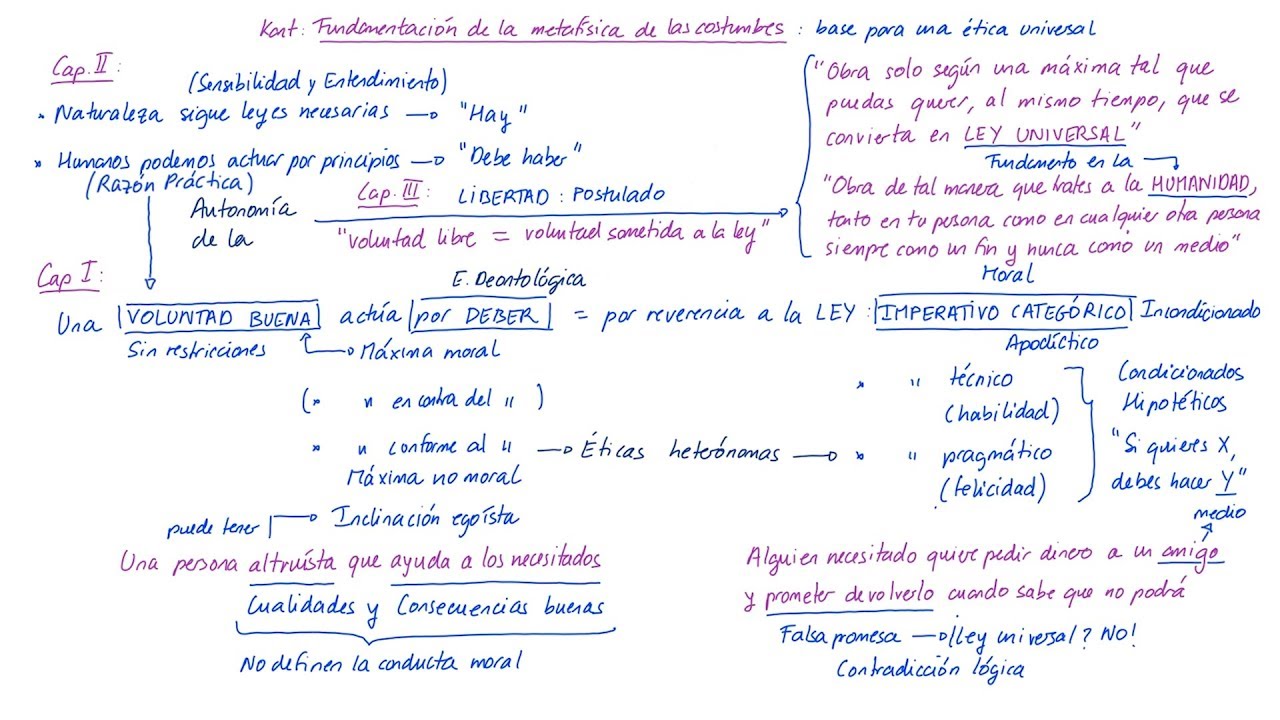 Kant: Fundamentación de la metafísica de las costumbres : base para una ética universal
Cap. II:
(Sensibilidad y Entendimiento)
* Naturaleza sigue leyes necesarias → "Hay"
* Humanos podemos actuar por principios → "Debe haber"
(Razón Práctica)
Autonomía
de la
Cap. III: LIBERTAD: Postulado
"voluntad libre = voluntad sometida a la ley"
"Obra solo según una máxima tal que
puedas querer, al mismo tiempo, que se
convierta en LEY UNIVERSAL"
Fundamento en la
"Obra de tal manera que trates a la HUMANIDAD,
tanto en tu persona como en cualquier otra persona
siempre como un fin y nunca como un medio"
Cap I:
E. Deontológica
Moral
Una VOLUNTAD BUENA actúa por DEBER = por reverencia a la LEY: IMPERATIVO CATEGÓRICO Incondicionado
Sin restricciones
Máxima moral
Apodíctico
(* " en contra del " )
* " conforme al " → Éticas heterónomas →
Máxima no moral
* " técnico
(habilidad)
* " pragmático
(felicidad)
Condicionados
Hipotéticos
"Si quieres X,
debes hacer Y"
medio
puede tener → Inclinación egoísta
Una persona altruísta que ayuda a los necesitados
Cualidades y Consecuencias buenas
No definen la conducta moral
Alguien necesitado quiere pedir dinero a un amigo
y prometer devolverlo cuando sabe que no podrá
Falsa promesa → ¿Ley universal? No!
Contradicción lógica